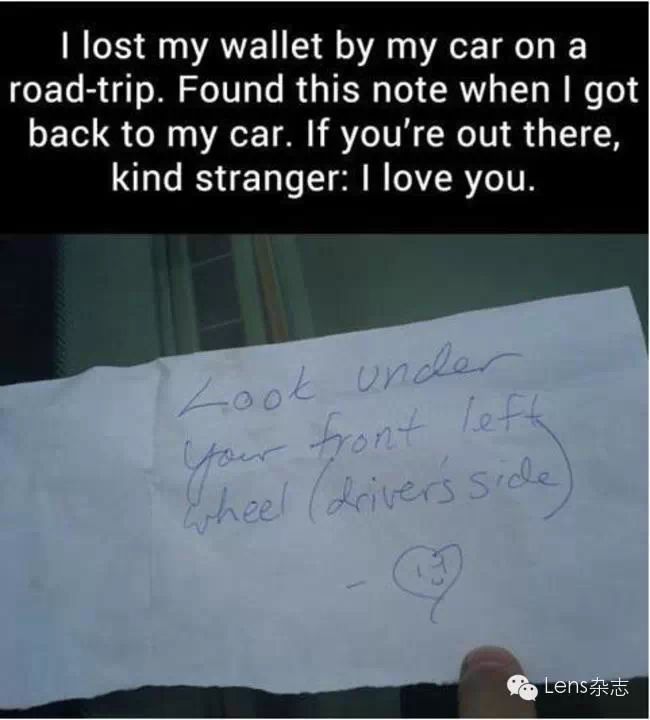 I lost my wallet by my car on a
road-trip. Found this note when I got
back to my car. If you're out there,
kind stranger: I love you.
Look under
your front left
wheel (driver's side)
-
Lens杂志